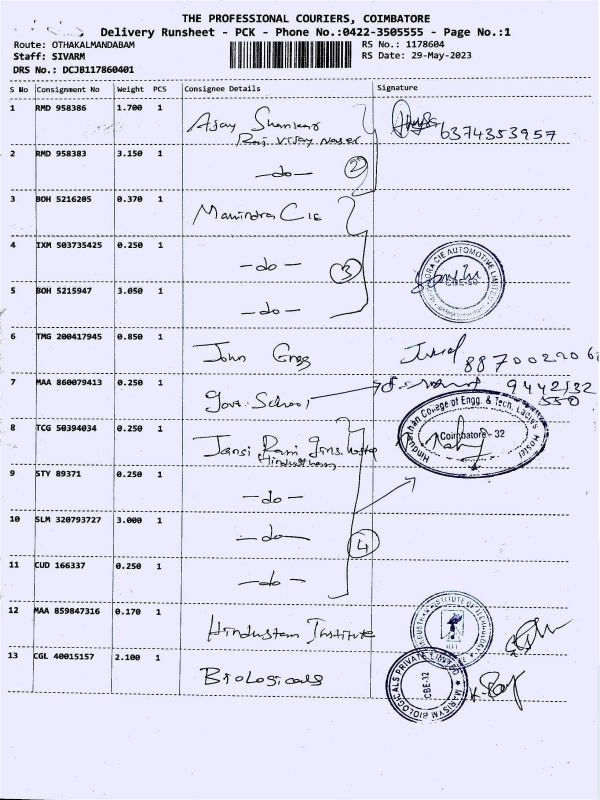 THE PROFESSIONAL COURIERS, COIMBATORE
Delivery Runsheet - PCK - Phone No.:0422-3505555 - Page No.:1
Route: OTHAKALMANDABAM
RS No.: 1178604
Staff: SIVARM
RS Date: 29-May-2023
DRS No.: DCJB117860401
S No Consignment No Weight PCS Consignee Details Signature
1 RMD 958386 1.700 1 Ajay Shankar
Raj Vijay Nager
6374353957
2 RMD 958383 3.150 1 -do- 2
3 BOH 5216205 0.370 1 Mahindra CIE
4 IXM 503735425 0.250 1 -do- 3
CIE AUTOMOTIVE LIMITED
5 BOH 5215947 3.050 1 -do-
6 TMG 200417945 0.850 1 John Greg
7 MAA 860079413 0.250 1 Govt. School 9442132
550
8 TCG 50394034 0.250 1 Jansi Rani
Hindusthan
Hindusthan College of Engg. & Tech. Ladies Hostel
Coimbatore - 32
9 STY 89371 0.250 1 -do-
10 SLM 320793727 3.000 1 -do- 4
11 CUD 166337 0.250 1 -do-
12 MAA 859847316 0.170 1 Hindustan Institute
INSTITUTE OF TECHNOLOGY
HIT
13 CGL 40015157 2.100 1 Biologicals
MARISYM BIOLOGICALS PRIVATE LIMITED
CBE-32